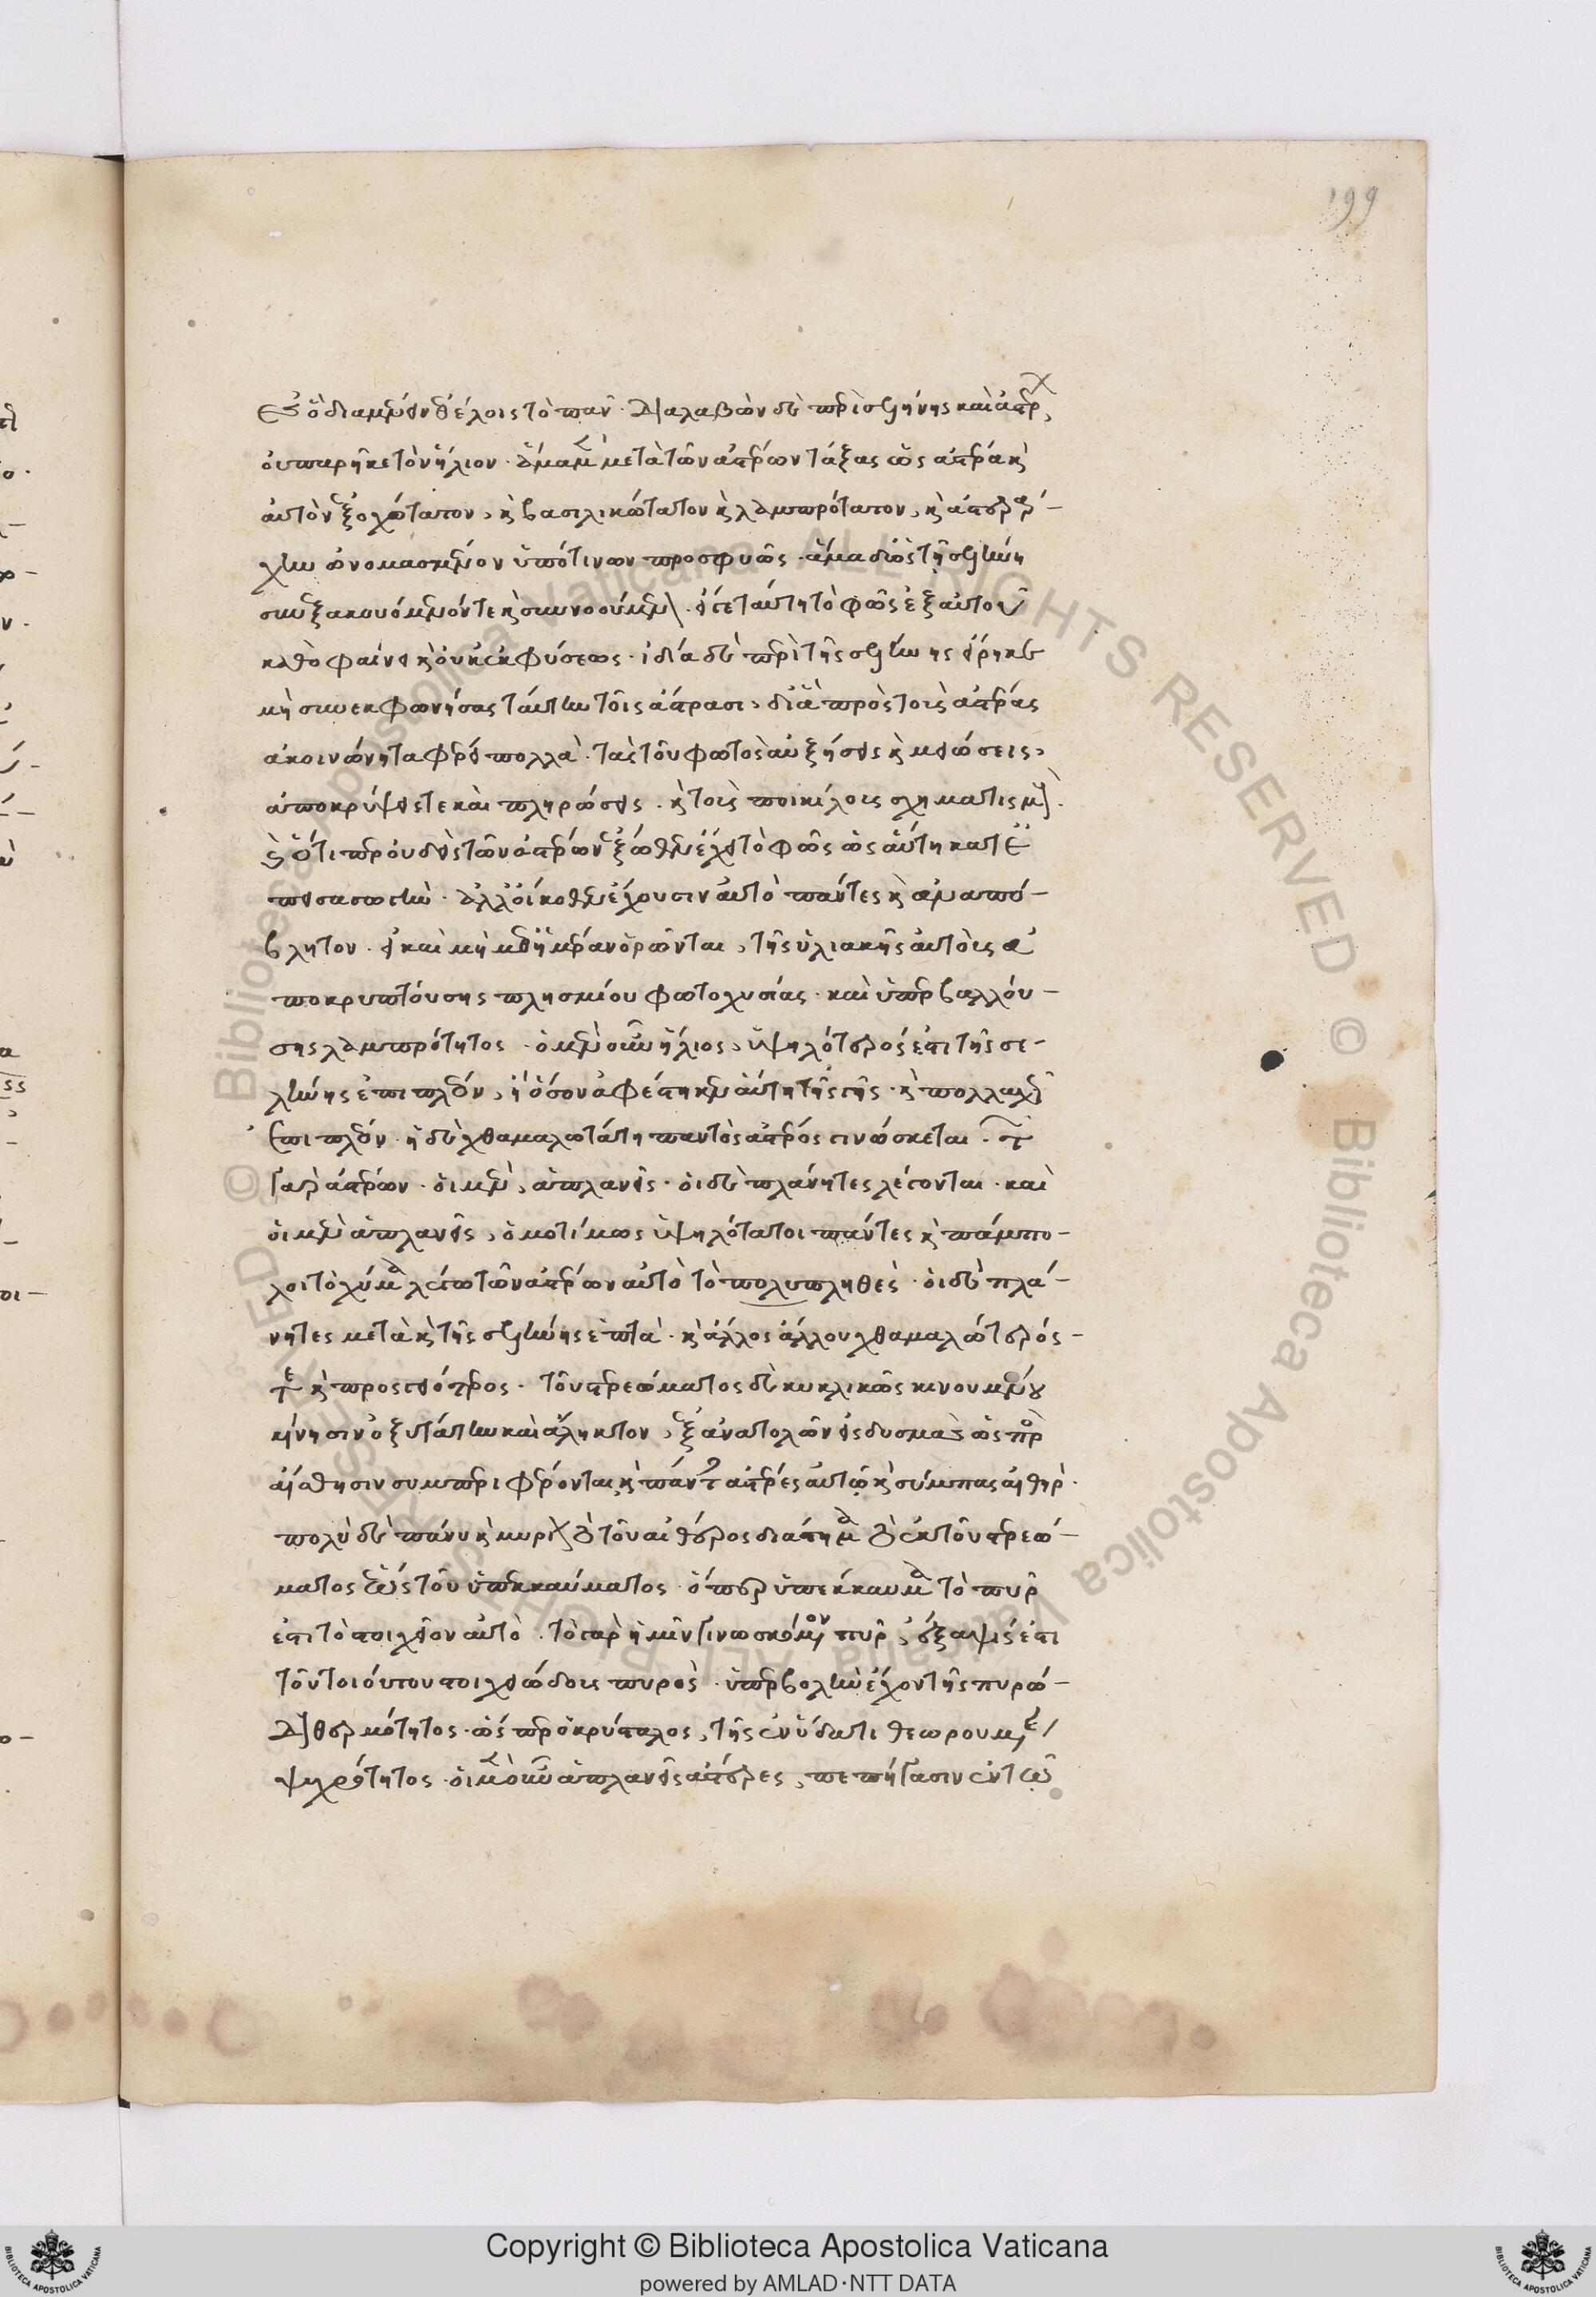 199
ὃ διαμένειν θέλοις τὸ πᾶν· διαλαβὼν δὲ περὶ σελήνης καὶ ἀστέρων,
οὐ παρῆκε τὸν ἥλιον· ἅμα μὲν μετὰ τῶν ἀστέρων τάξας ὡς ἀστέρα καὶ
αὐτὸν ἐξοχώτατον, καὶ βασιλικώτατον καὶ λαμπρότατον, καὶ
ὠνομασμένον ὑπό τινων προσφυῶς· ἅμα δὲ ὡς τῇ σελήνῃ
συνεξακουόμενόν τε καὶ συνοούμενον· εἴγε ταύτῃ τὸ φῶς ἐξ αὐτοῦ
καθὸ φαίνει καὶ οὐκ ἐκ φύσεως· ἰδίᾳ δὲ περὶ τῆς σελήνης εἴρηκε
μὴ συνεκφωνήσας ταύτην τοῖς ἄστρασι, διὰ πρὸς τοὺς ἀστέρας
ἀκοινώνητα φέρει πολλά· τὰς τοῦ φωτὸς αὐξήσεις καὶ μειώσεις,
ἀποκρύψεις τε καὶ πληρώσεις· καὶ τοὺς ποικίλους σχηματισμούς·
ὅτιπερ οὐδεὶς τῶν ἀστέρων ἔξωθεν ἔχει τὸ φῶς ὡς αὕτη
ἀλλ' οἴκοθεν ἔχουσιν αὐτὸ πάντες καὶ ἀναπό-
βλητον· εἰ καὶ μὴ μεθ' ἡμέραν ὁρῶνται, τῆς ἡλιακῆς αὐτοὺς ἀ
ποκρυπτούσης πλησμίου φωτοχυσίας· καὶ ὑπερβαλλού-
σης λαμπρότητος· ὁ μὲν οὖν ἥλιος, ὑψηλότερός ἐστι τῆς σε-
λήνης ἐπιπλέον, ἢ ὅσον ἀφέστηκεν αὕτη τῆς γῆς· καὶ πολλαχῇ
ἐπιπλέον· ἡ δὲ χθαμαλωτάτη παντὸς ἀστέρος γινώσκεται· τῶν
γὰρ ἀστέρων· οἱ μὲν, ἀπλανεῖς· οἱ δὲ πλάνητες λέγονται· καὶ
οἱ μὲν ἀπλανεῖς, ὁμοτίμως ὑψηλότατοι πάντες καὶ πάμπο-
λοι τὸ χύμα λέγω τῶν ἀστέρων αὐτὸ τὸ πολυπληθές· οἱ δὲ πλά-
νητες μετὰ καὶ τῆς σελήνης ἑπτά· καὶ ἄλλος ἄλλου χθαμαλώτερός
τε καὶ προσγειότερος· τοῦ στερεώματος δὲ κυκλικῶς κινουμένου
κίνησιν ὀξυτάτην καὶ ἄληκτον, ἐξ ἀνατολῶν εἰς δυσμὰς ὡς πρὸς
αἴσθησιν συμπεριφέρονται καὶ πάντες ἀστέρες αὐτῷ καὶ σύμπας αἰθήρ·
πολὺ δὲ πάνυ καὶ τὸ τοῦ αἰθέρος διάστημα τὸ ἐκ τοῦ στερεώ-
ματος ἕως τοῦ ὑπεκκαύματος· ὅπερ ὑπέκκαυμα τὸ πῦρ
ἐστι τὸ στοιχεῖον αὐτό· τὸ γὰρ ἡμῖν γινωσκόμενον πῦρ, ἔξαψίς ἐστι
τοῦ τοιούτου στοιχειώδους πυρός· ὑπερβολὴν ἔχον τῆς πυρώ-
δους θερμότητος· ὥσπερ ὁ κρύσταλος, τῆς ἐν ὕδατι θεωρουμένης
ψυχρότητος· οἱ μὲν οὖν ἀπλανεῖς ἀστέρες, πεπήγασιν ἐν τῷ
Copyright © Biblioteca Apostolica Vaticana
powered by AMLAD·NTT DATA